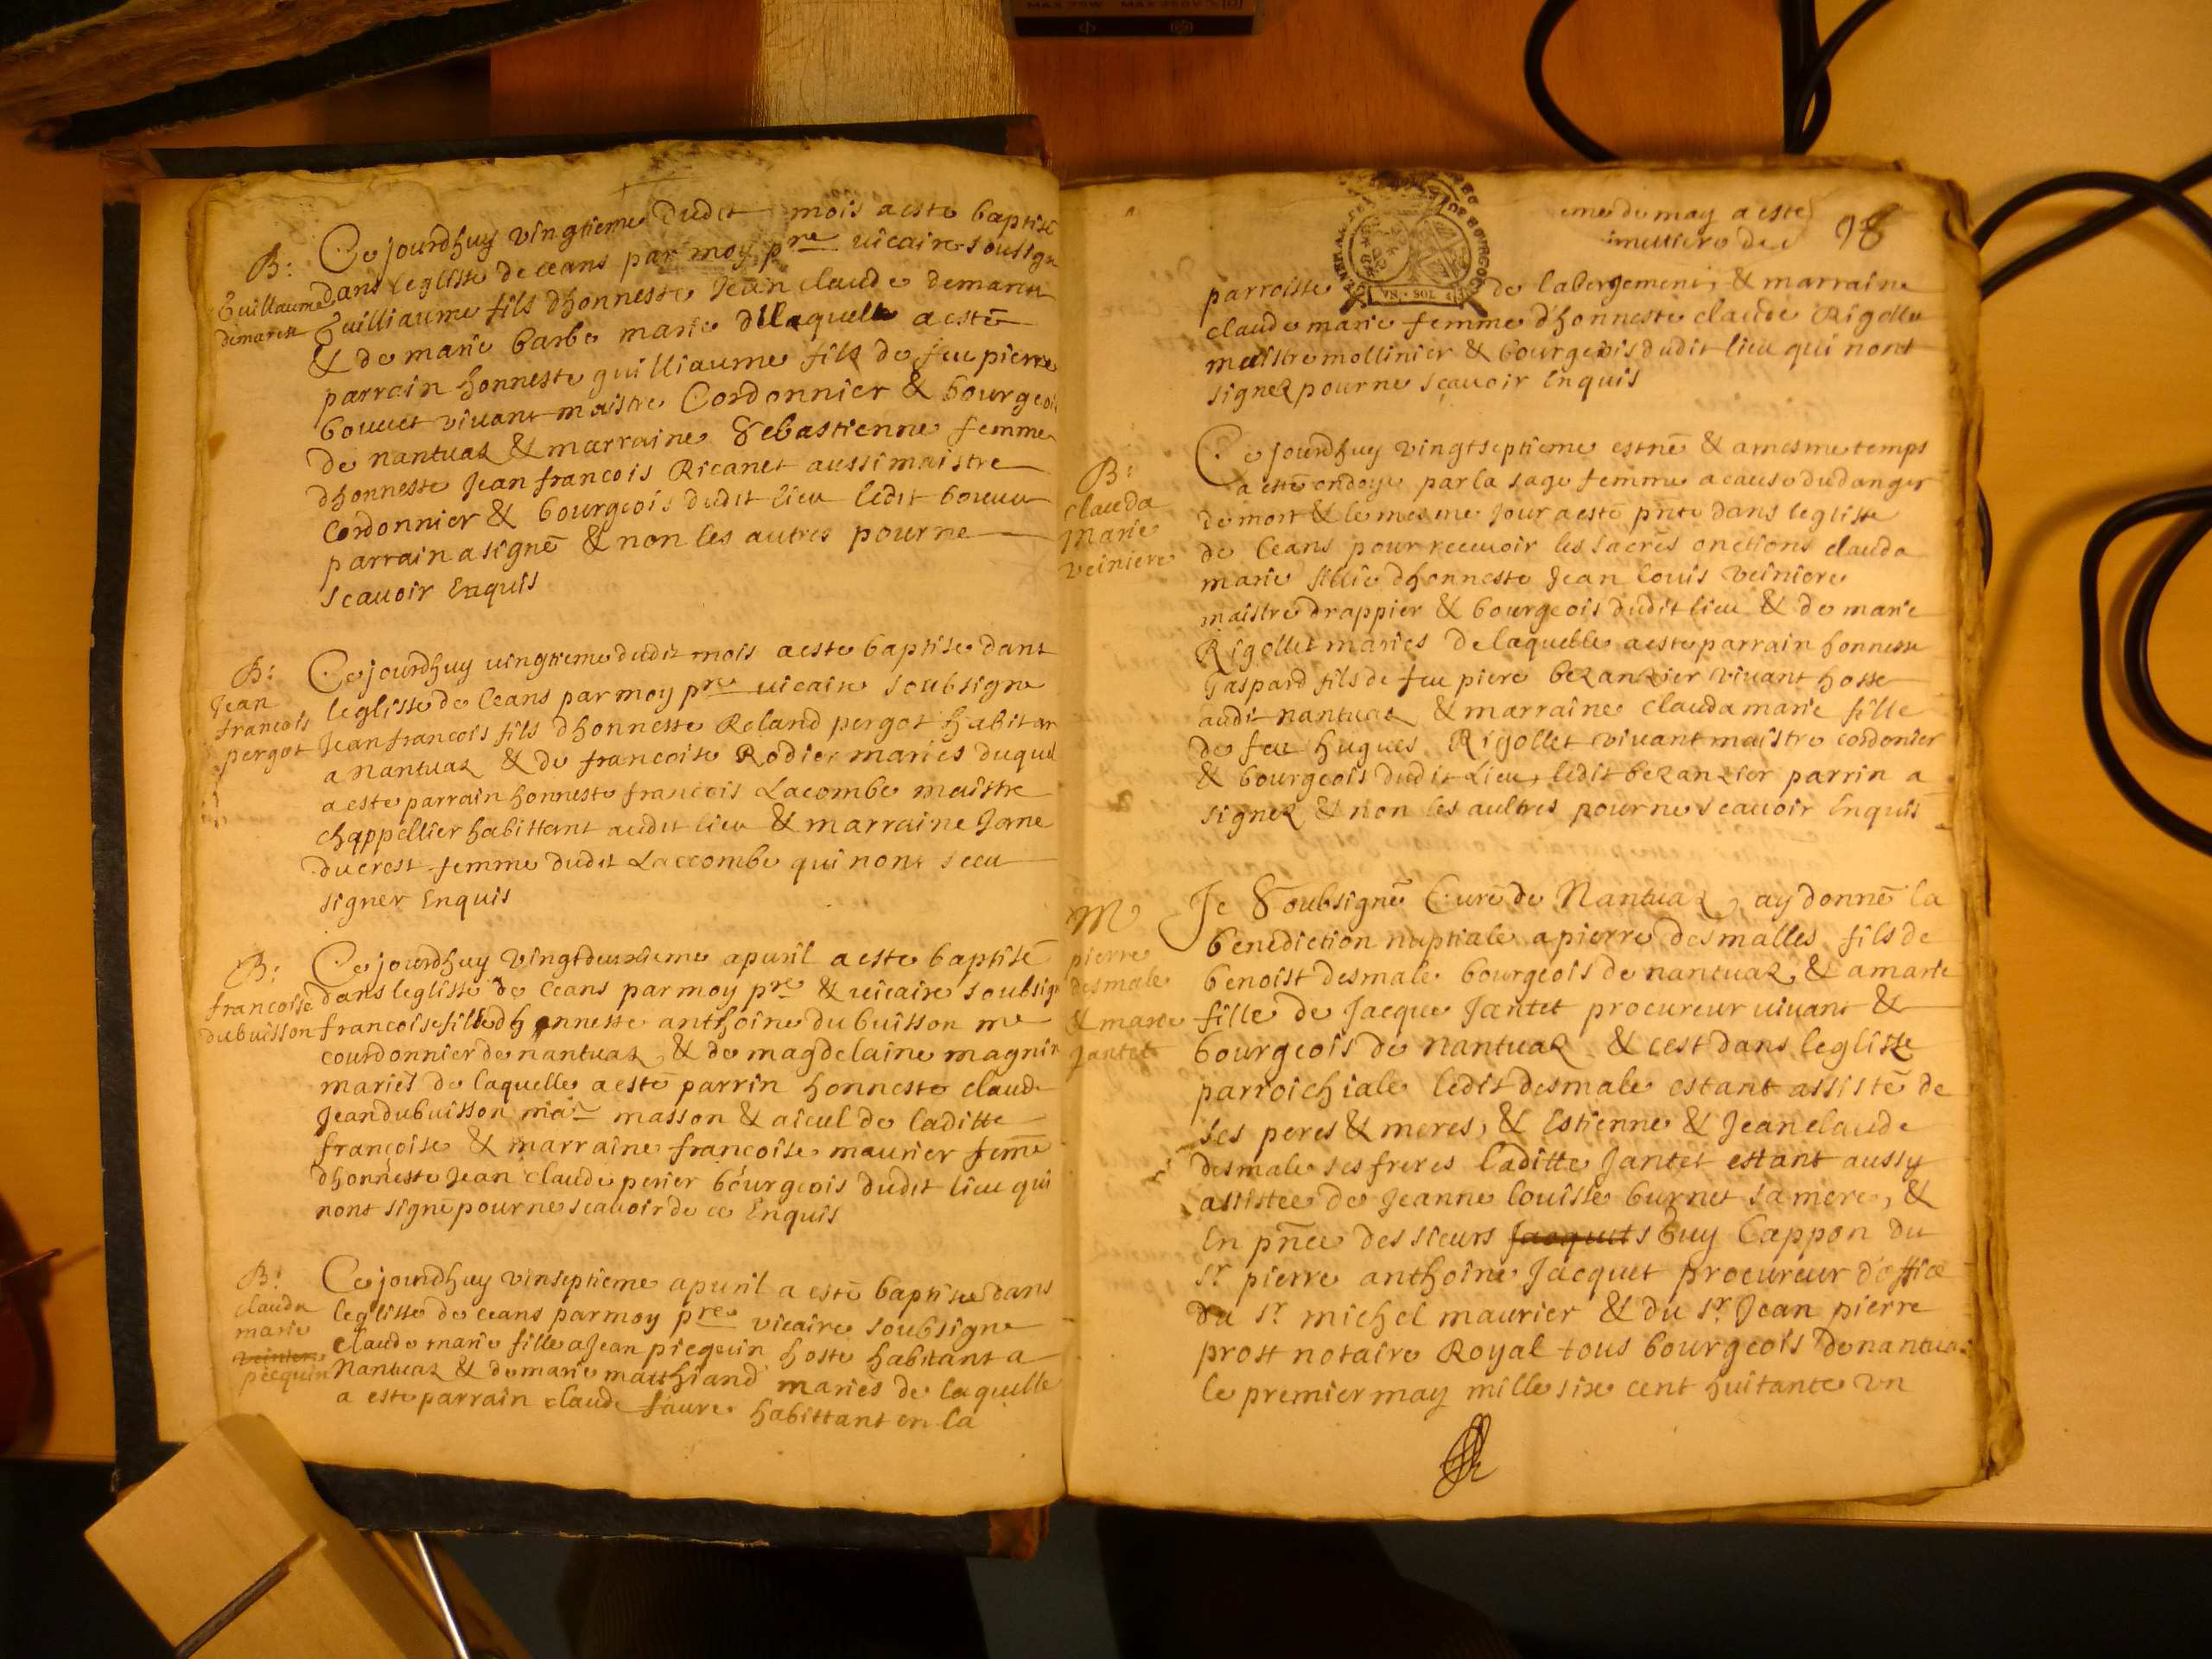 B:
Guillaume
demarest
Ce jourdhuy vingtieme dudit mois a este baptise
dans leglisse de ceans par moy pre vicaire sousigne
Guilliaume fils dhonneste Jean claude demarest
& de marie barbe marie dllaquelle a esté
parrain honneste guilliaume fils de feu pierre
bouuet vivant maistre Cordonnier & bourgeois
de nantuaz & marraine Sebastienne femme
dhonneste Jean francois Ricanet aussi maistre
Cordonnier & bourgeois dudit lieu ledit bouuet
parrain a signé & non les autres pour ne
scauoir Enquis
B:
Jean
francois
pergot
Ce jourdhuy vingtieme dudit mois a este baptise dant
leglisse de Ceans par moy pre uicaire soubsigne
Jean francois fils dhonneste Roland pergot habitan
a Nantuaz & de francoise Rodier maries duquel
a este parrain honneste francois Lacombe maistre
chappellier habittant audit lieu & marraine Jane
ducrest femme dudit Laccombe qui nont sceu
signer Enquis
B:
francoise
dubuisson
Ce jourdhuy vingtdeuxieme apuril a este baptisé
dans leglisse de Ceans par moy pre & uicaire soubsig
francoise fille dhonneste anthoine dubuisson me
courdonnier de nantuaz & de magdelaine magnin
mariés de laquelle a esté parrin honneste claude
Jean dubuisson masson & aieul de laditte
françoise & marraine francoise maurier feme
dhonneste Jean claude perier bourgeois dudit lieu qui
nont signé pour ne scauoir de ce Enquis
B:
clauda
marie
veiniere
picquin
Ce jourdhuy vinseptieme apuril a esté baptisee dans
leglisse de ceans par moy pre vicaire soubsigne
claude marie fille a Jean picquin hoste habitant a
Nantuaz & de marie matthiand mariés de laquelle
a este parrain claude faure habittant en la
eme de may a este
imettiere de
98
parroisse de labergement, & marraine
claude marie femme d'honneste claude Rigollet
maistre mollinier & bourgeois dudit lieu qui nont
signez pour ne sçauoir Enquis
B:
clauda
marie
veiniere
Ce jourdhuy vingtseptieme est né & a mesme temps
a esté ondoye par la sage femme a cause du danger
de mort & le mesme jour a esté pnte dans leglisse
de Ceans pour receuoir les sacrés onctions clauda
marie fillie dhonneste Jean louis veiniere
maistre drappier & bourgeois dudit lieu & de marie
Rigollet maries de laquelle a este parrain honneste
Gaspard fils de feu piere bezanzier vivant hoste
audit nantuaz & marraine clauda marie fille
de feu hugues Rigollet vivant maistre cordonier
& bourgeois dudit Lieu, ledit bezanzier parrin a
signez & non les aultres pour ne scauoir Enquis
M
pierre
desmale
& marie
Jantet
Je Soubsigné Curé de Nantuaz, ay donné la
benediction nuptiale a pierre desmalles fils de
benoist desmale bourgeois de nantuaz & a marie
fille de Jacque Jantet procureur uiuant &
bourgeois de nantuaz & cest dans leglisse
parroichiale ledit desmale estant assisté de
ses peres & meres, & Estienne & Jean claude
desmale ses freres laditte Jantet estant aussy
assistée de Jeanne louisse burnet sa mere, &
En pnce des sieurs Jacquets Guy Cappon du
sr pierre anthoine Jacquet procureur d'office
du sr michel maurier & du sr Jean pierre
prost notaire Royal tous bourgeois de nantuaz
le premier may mille six cent huitante un